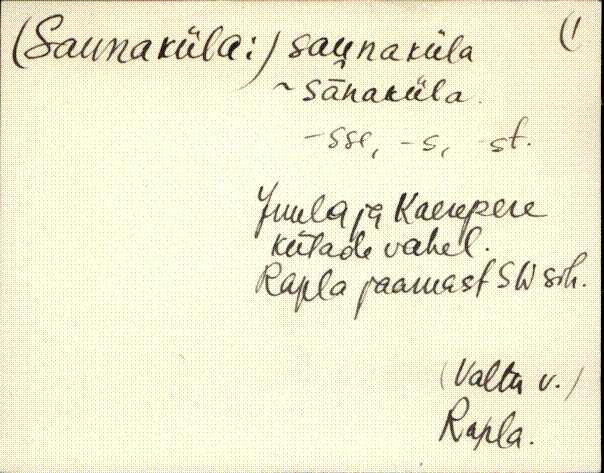 (Saunaküla:) saunaküla (1
~ sānaküla.
-sse, -s, -st.
Juula ja Kaerepere
külade vahel.
Rapla jaamast SW sih.
(Valtu v.)
Rapla.